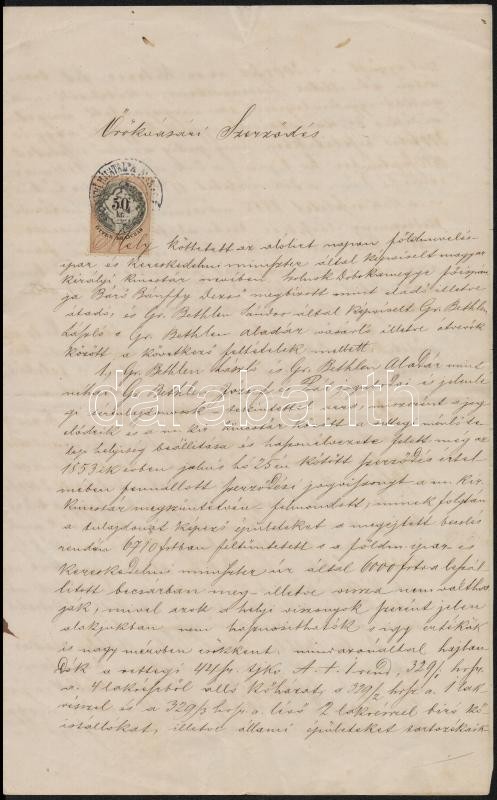 Örökvásári Szerződés
50
kr
Mely köttetett az alólirt napon földmivelés-
ipar és kereskedelmi miniszter által képviselt magyar
királyi kincstár nevében Szolnok Dobokamegye főispán
ja Báró Bánffy Dezső megbizott mint eladó illetve
átadó, és Gr. Bethlen Sándor által képviselt Gr. Bethlen
László s Gr. Bethlen Aladár vásárló illetve átvevők
között a következő feltételek mellett.
1, Gr. Bethlen László és Gr. Bethlen Aladár mint
néhai Gr. Bethlen József és
gi tulajdonosok tekintettel arra, miszerint a jog
elődeik és a m. kir. kincstár között a rettegi méntele
lep helyiség beállitása és haszonélvezete felett még az
1853ik évben julius hó 25én kötött szerződés értel
mében fennállott szerződési jogviszonyt a m. kir.
kincstár megszüntetvén felmondott, minek folytán
a tulajdonát képező épületeket s a megejtett becslés
rendén 6710 frtban feltüntetett s a földm. ipar és
kereskedelmi miniszter úr által 6000 frtra leszál
litott becsárban meg- illetve vissza nem válthat
ják, mivel azok a helyi viszonyok szerint jelen
alakjukban nem haszonosithatók s igy értékük
is nagy mérvben csökkent: mindazonáltal hajlan
dók a rettegi 44 sz. tjkv. A + 1 rend, 329/1 hrsz.
a. 4 lakrészből álló kőházat, a 329/2 hrsz. a. 1 lak
részszel és a 329/3 hrsz. a. lévő 2 lakrészszel biró kő
istállókat, illetve állami épületeket tartozékaik
darabanth